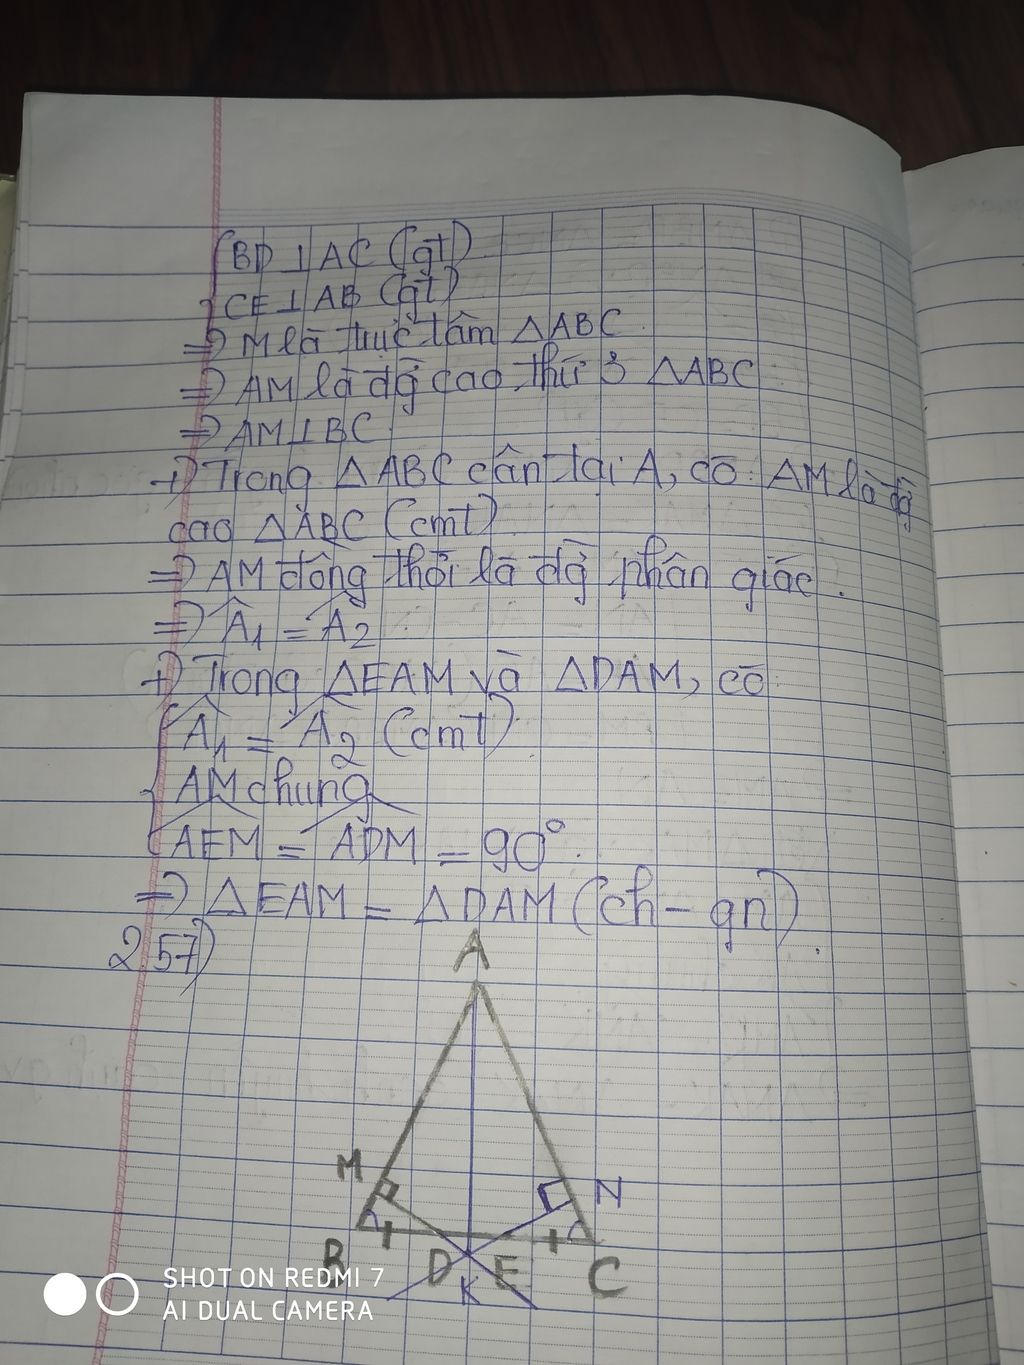 {BD ⊥ AC (gt)
{CE ⊥ AB (gt)
=> M là trực tâm △ABC
=> AM là đg cao thứ 3 △ABC
=> AM ⊥ BC
+) Trong △ABC cân tại A, có: AM là đg
cao △ABC (cmt)
=> AM đồng thời là đg phân giác.
=> Â1 = Â2
+) Trong △EAM và △DAM, có
Â1 = Â2 (cmt)
AM chung
AEM = ADM = 90°.
=> △EAM = △DAM (ch - gn).
2.57)
A
M
N
B
D
K
E
C
SHOT ON REDMI 7
AI DUAL CAMERA